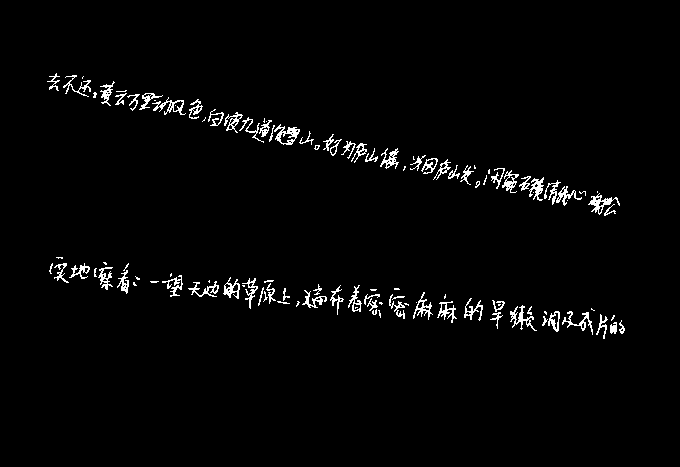 去不还。黄云万里动风色,白波九道流雪山。好为庐山谣,兴因庐山发。闲窥石镜清我心谢公
实地察看:一望天边的草原上,遍布着密密麻麻的旱獭洞及成片的